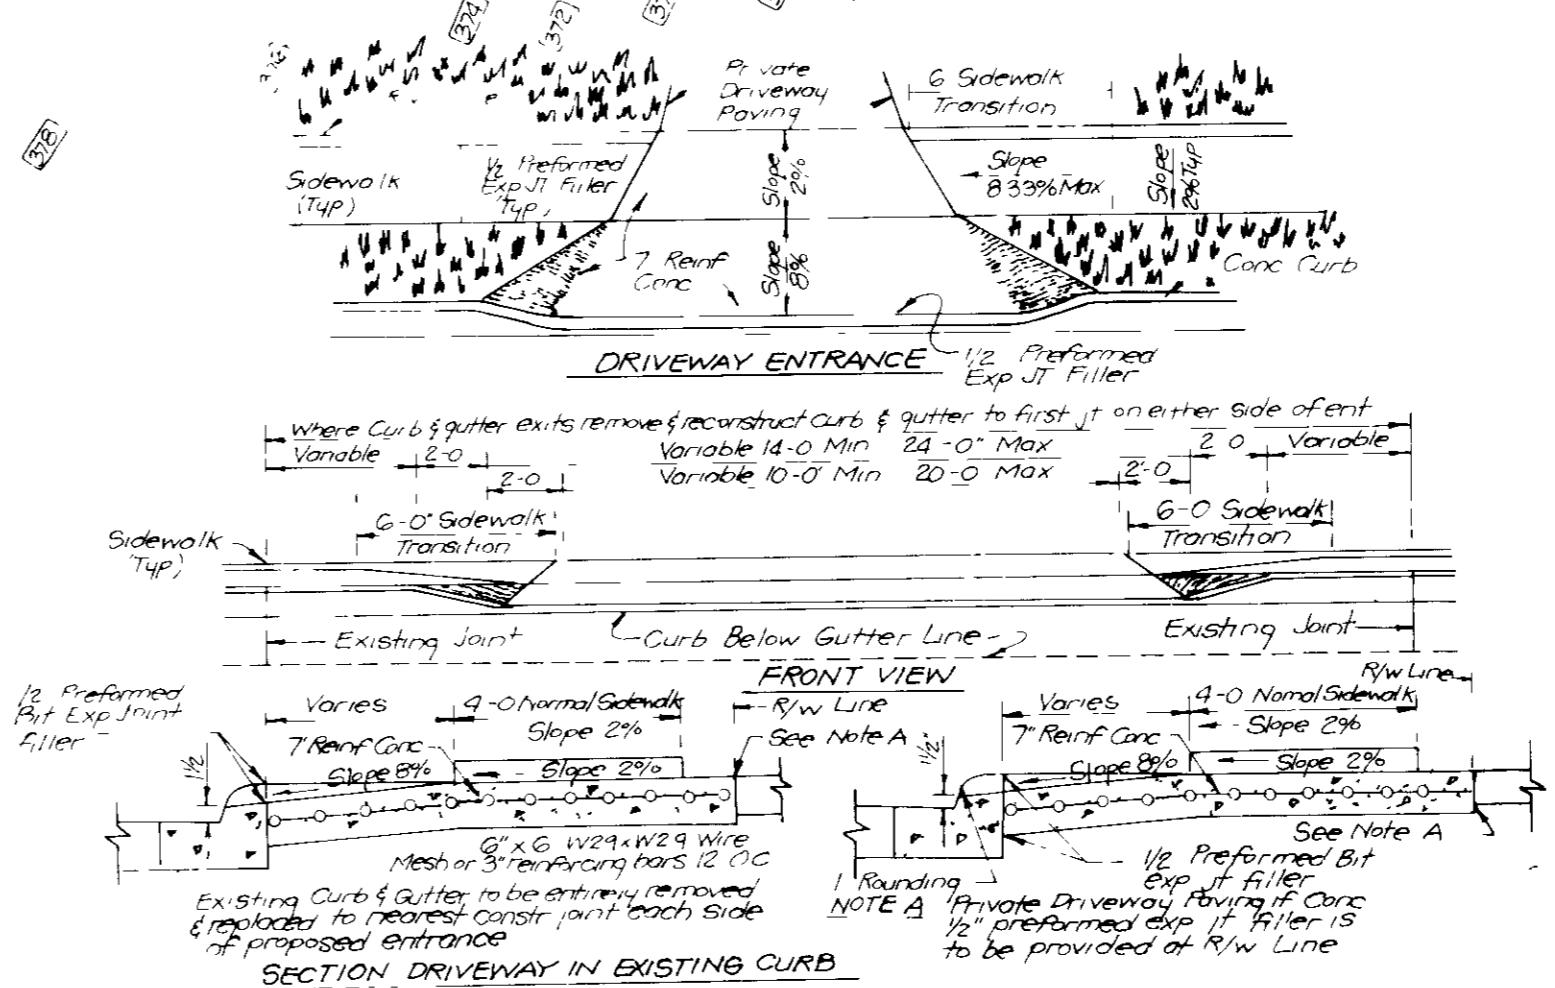 374
372
378
Private
Driveway
Paving
6 Sidewalk
Transition
Sidewalk
(Typ)
1/2 Preformed
Exp JT Filler
(Typ)
Slope
2%
Slope
833% Max
Slope
2% Typ
7 Reinf
Conc
Slope
8%
Conc Curb
DRIVEWAY ENTRANCE
1/2 Preformed
Exp JT Filler
Where Curb & gutter exits remove & reconstruct curb & gutter to first jt on either side of ent
Variable
2-0
Variable 14-0 Min 24-0" Max
2 0
Variable
Variable 10-0' Min 20-0 Max
2-0
2'-0
6-0" Sidewalk
Transition
6-0 Sidewalk
Transition
Sidewalk
(Typ)
Existing Joint
Curb Below Gutter Line
Existing Joint
FRONT VIEW
1/2 Preformed
Bit Exp Joint
filler
Varies
4-0 Normal Sidewalk
Slope 2%
R/W Line
See Note A
7" Reinf Conc
Slope 8%
Slope 2%
1 1/2
6" x 6 W29 x W29 Wire
Mesh or 3" reinforcing bars 12 OC
Existing Curb & Gutter to be entirely removed
& replaced to nearest constr joint each side
of proposed entrance
SECTION DRIVEWAY IN EXISTING CURB
R/W Line
Varies
4-0 Nomal Sidewalk
Slope 2%
7" Reinf Conc
1 1/2"
Slope 8%
Slope 2%
See Note A
1/2 Preformed Bit
exp jt filler
1 Rounding
NOTE A Private Driveway Paving if Conc
1/2" preformed exp jt filler is
to be provided at R/W Line